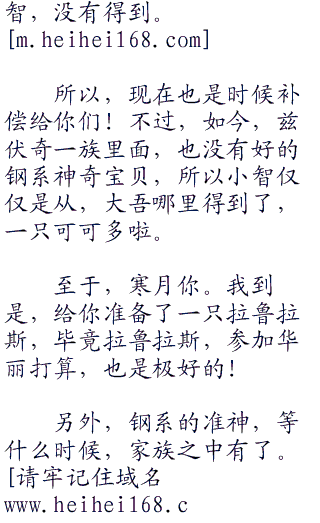 智，没有得到。
[m.heihei168.com]
所以，现在也是时候补
偿给你们！不过，如今，兹
伏奇一族里面，也没有好的
钢系神奇宝贝，所以小智仅
仅是从，大吾哪里得到了，
一只可可多啦。
至于，寒月你。我到
是，给你准备了一只拉鲁拉
斯，毕竟拉鲁拉斯，参加华
丽打算，也是极好的！
另外，钢系的准神，等
什么时候，家族之中有了。
[请牢记住域名
www.heihei168.c